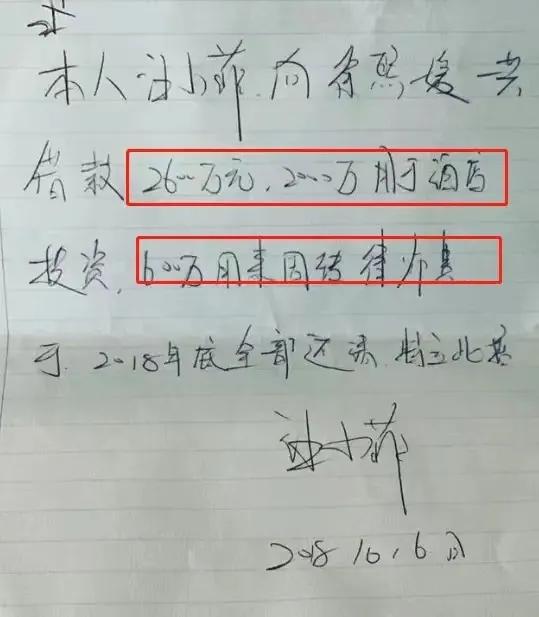 本人汪小菲.向徐熙媛共
借款2600万元.2000万用于酒店
投资,600万用来周转律师费
于.2018年底全部还清.特立此据
汪小菲
2018 10.6日